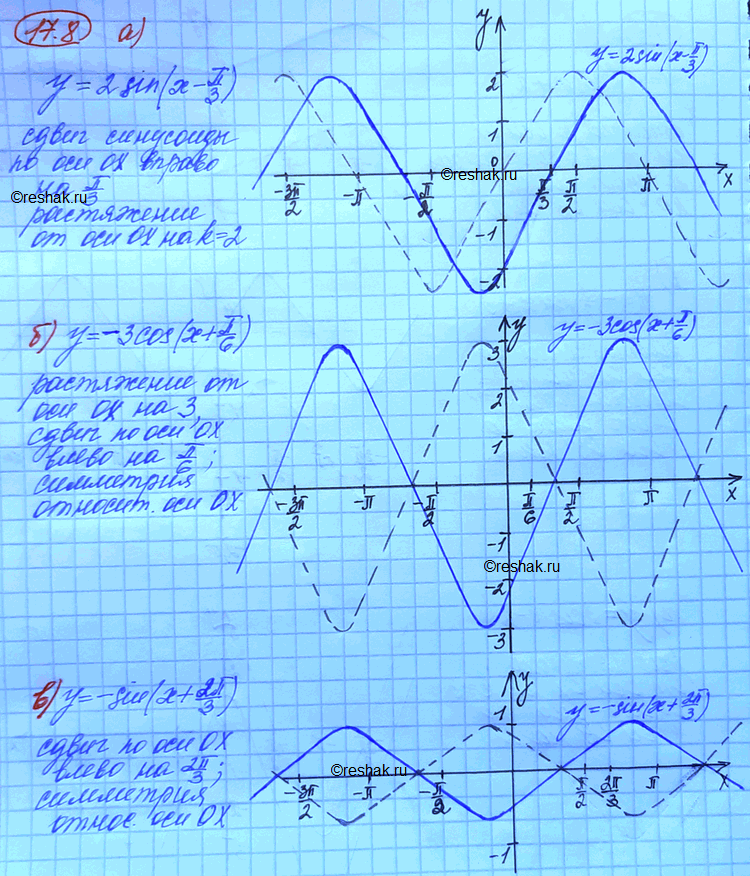 17.8 а)
y = 2 sin(x - π/3)
сдвиг синусоиды
по оси OX вправо
на π/3
растяжение
от оси OX на k=2
©reshak.ru
y
y = 2 sin(x - π/3)
2
1
0
-3π/2 -π -π/2 π/3 π/2 π x
-1
-2
©reshak.ru
б) y = -3 cos(x + π/6)
растяжение от
оси OX на 3,
сдвиг по оси OX
влево на π/6;
симметрия
относит. оси OX
y
y = -3 cos(x + π/6)
3
2
1
-3π/2 -π -π/2 π/6 π/2 π x
-1
-2
-3
©reshak.ru
в) y = -sin(x + 2π/3)
сдвиг по оси OX
влево на 2π/3;
симметрия
относ. оси OX
y
y = -sin(x + 2π/3)
1
-3π/2 -π -π/2 π/2 2π/3 π x
-1
©reshak.ru